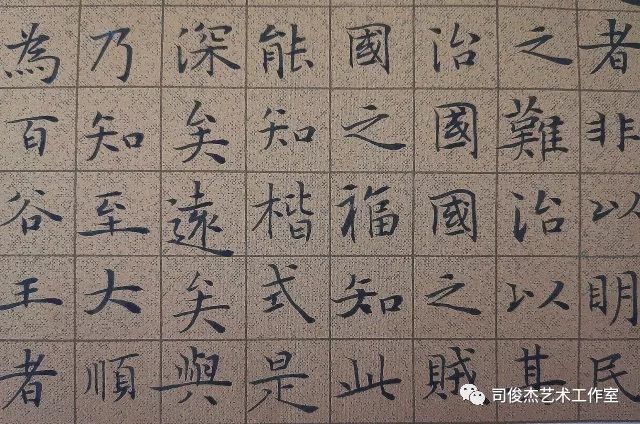 者非以明民
之難治以其
治國國之賊
國之福知此
能知楷式是
深矣遠矣與
乃知至大順
為百谷王者
司俊杰艺术工作室